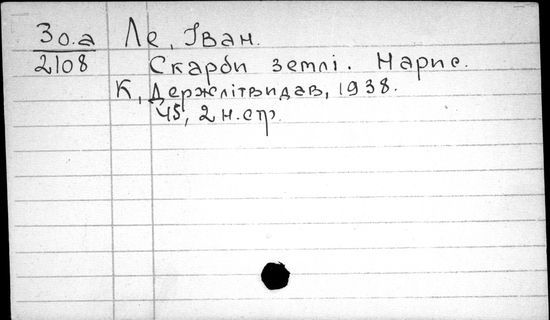 Зо.а Ле, Іван.
2108 Скарби землі. Нарис.
К, Держлітвидав, 1938.
45, 2 н. стр.